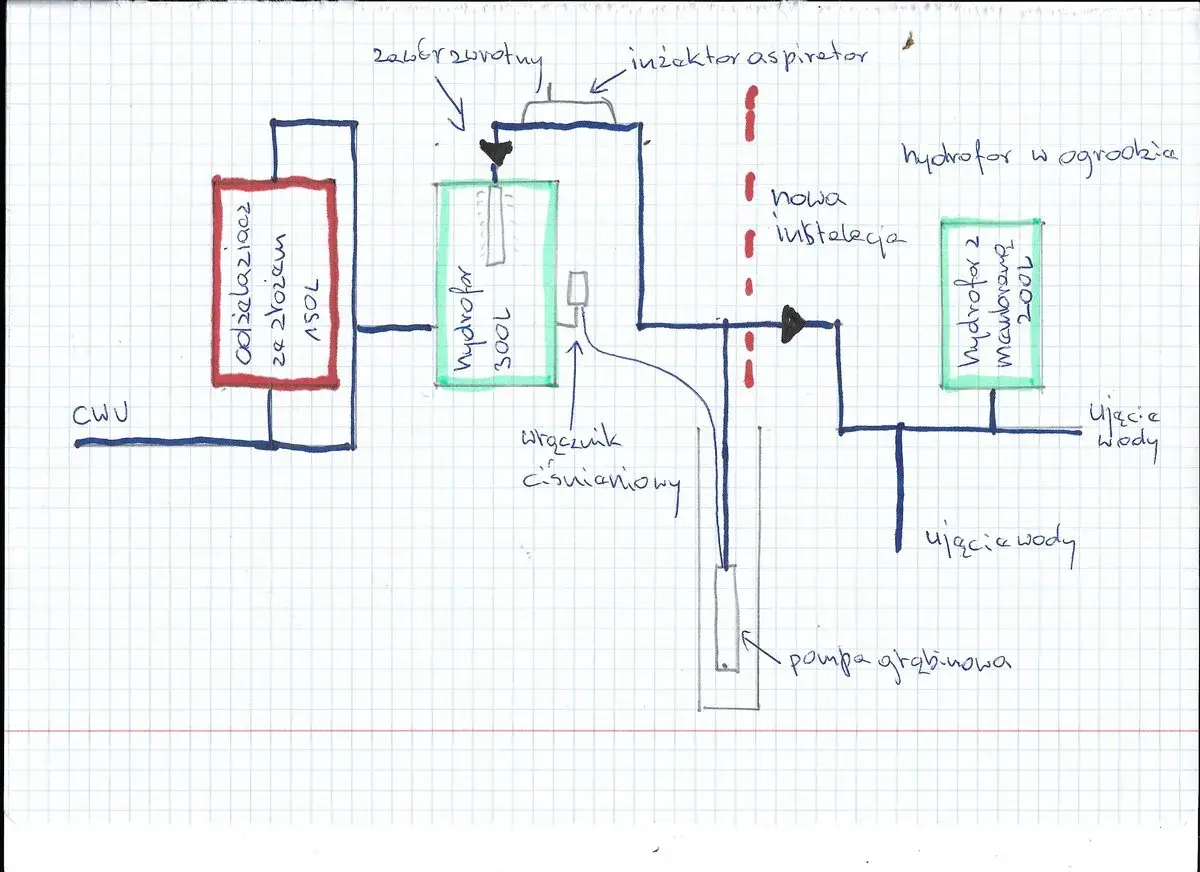 zawór zwrotny
inżektor aspirator
hydrofor w ogrodzie
nowa
instalacja
odżelaziacz
ze złożem
150L
hydrofor
300L
hydrofor z
membraną
200L
CWU
włącznik
ciśnieniowy
ujęcie
wody
ujęcie wody
pompa głębinowa